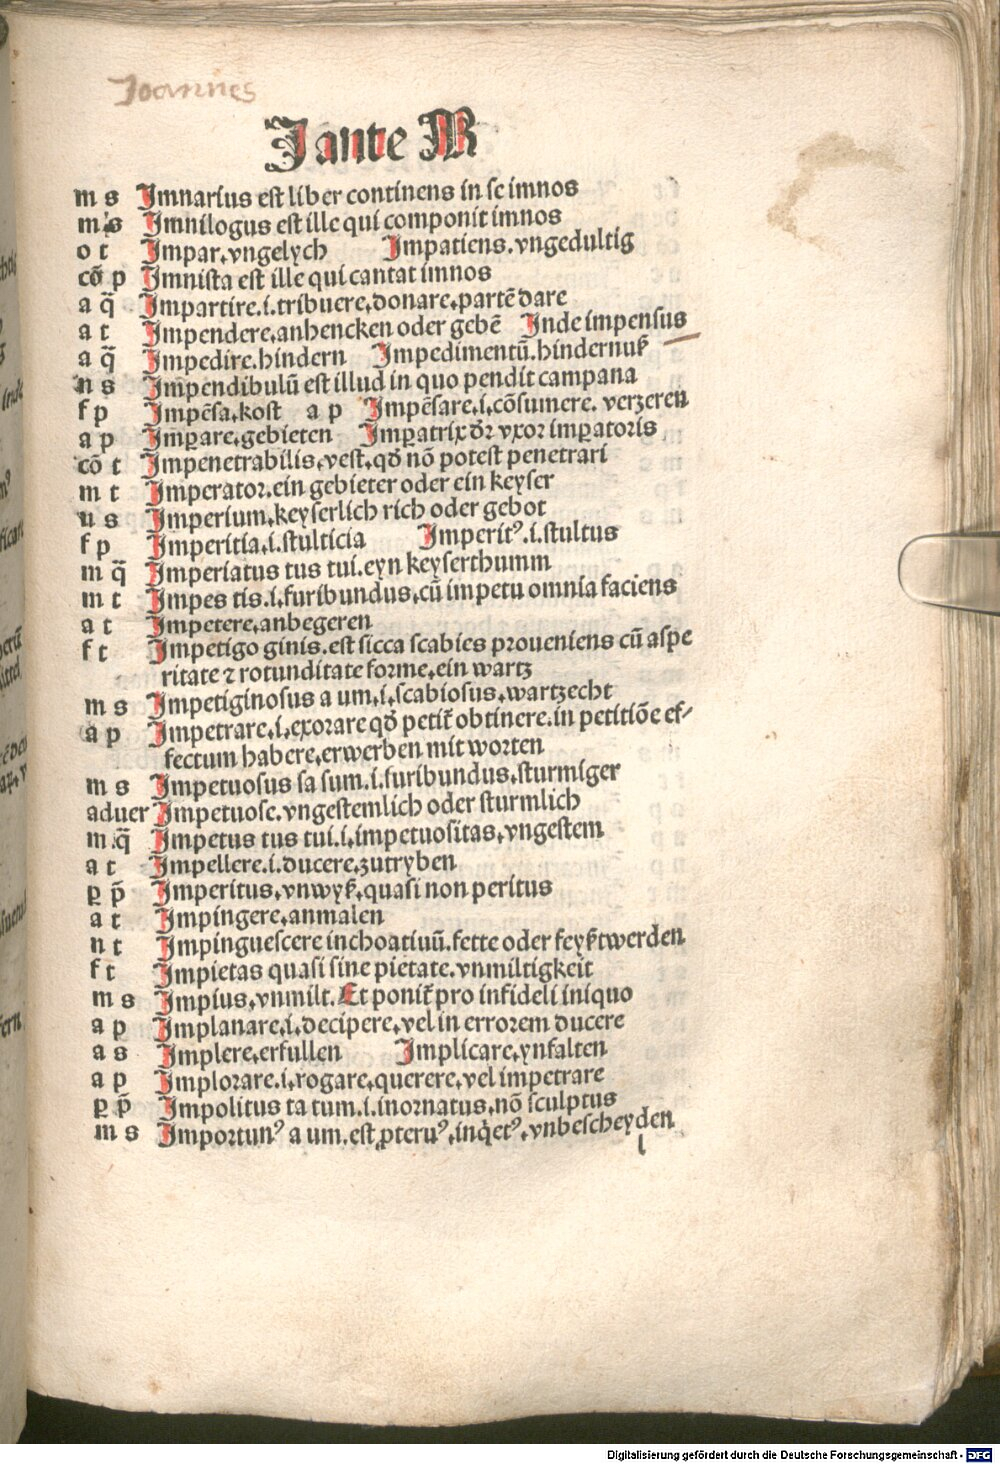 Joannes
J ante M
m s Imnarius est liber continens in se imnos
m s Imnilogus est ille qui componit imnos
o t Impar.vngelych Impatiens.vngedultig
cõ p Imnista est ille qui cantat imnos
a q̃ Impartire.i.tribuere.donare.partẽ dare
a t Impendere.anhencken oder gebẽ Inde impensus
a q̃ Impedire.hindern Impedimentũ.hindernuß
n s Impendibulũ est illud in quo pendit campana
f p Impẽsa.kost a p Impẽsare.i.cõsumere. verzeren
a p Imꝑare.gebieten Imꝑatrix dr̃ vxor imꝑatoris
cõ t Impenetrabilis.vest.qđ nõ potest penetrari
m t Imperator.ein gebieter oder ein keyser
n s Imperium.keyserlich rich oder gebot
f p Imperitia.i.stulticia Imperitꝰ.i.stultus
m q̃ Imperiatus tus tui.eyn keyserthumm
m t Impes tis.i.furibundus.cũ impetu omnia faciens
a t Impetere.anbegeren
f t Impetigo ginis.est sicca scabies proueniens cũ aspe
ritate ⁊ rotunditate forme.ein wartz
m s Impetiginosus a um.i.scabiosus.wartzecht
a p Impetrare.i.exorare qđ petit̃ obtinere.in petitiõe ef⸗
fectum habere.erwerben mit worten
m s Impetuosus sa sum.i.furibundus.sturmiger
aduer Impetuose.vngestemlich oder sturmlich
m q̃ Impetus tus tui.i.impetuositas.vngestem
a t Impellere.i.ducere.zutryben
ꝑ p̃ Imperitus.vnwyß.quasi non peritus
a t Impingere.anmalen
n t Impinguescere inchoatiuũ.fette oder feyßt werden
f t Impietas quasi sine pietate.vnmiltigkeit
m s Impius.vnmilt.Et ponit̃ pro infideli iniquo
a p Implanare.i.decipere.vel in errorem ducere
a s Implere.erfullen Implicare.ynfalten
a p Implorare.i.rogare.querere.vel impetrare
ꝑ p̃ Impolitus ta tum.i.inornatus.nõ sculptus
m s Importunꝰ a um.est ꝓteruꝰ.inq̇etꝰ.vnbescheyden
l
Digitalisierung gefördert durch die Deutsche Forschungsgemeinschaft - DFG